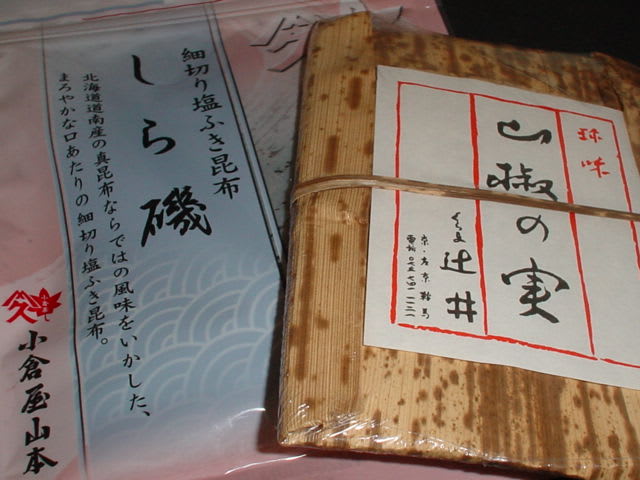 細切り塩ふき昆布
しら磯
北海道道南産の真昆布ならではの風味をいかした、
まろやかな口あたりの細切り塩ふき昆布。
小倉屋山本
珍味
山椒の実
くらま
辻井
京・左京鞍馬